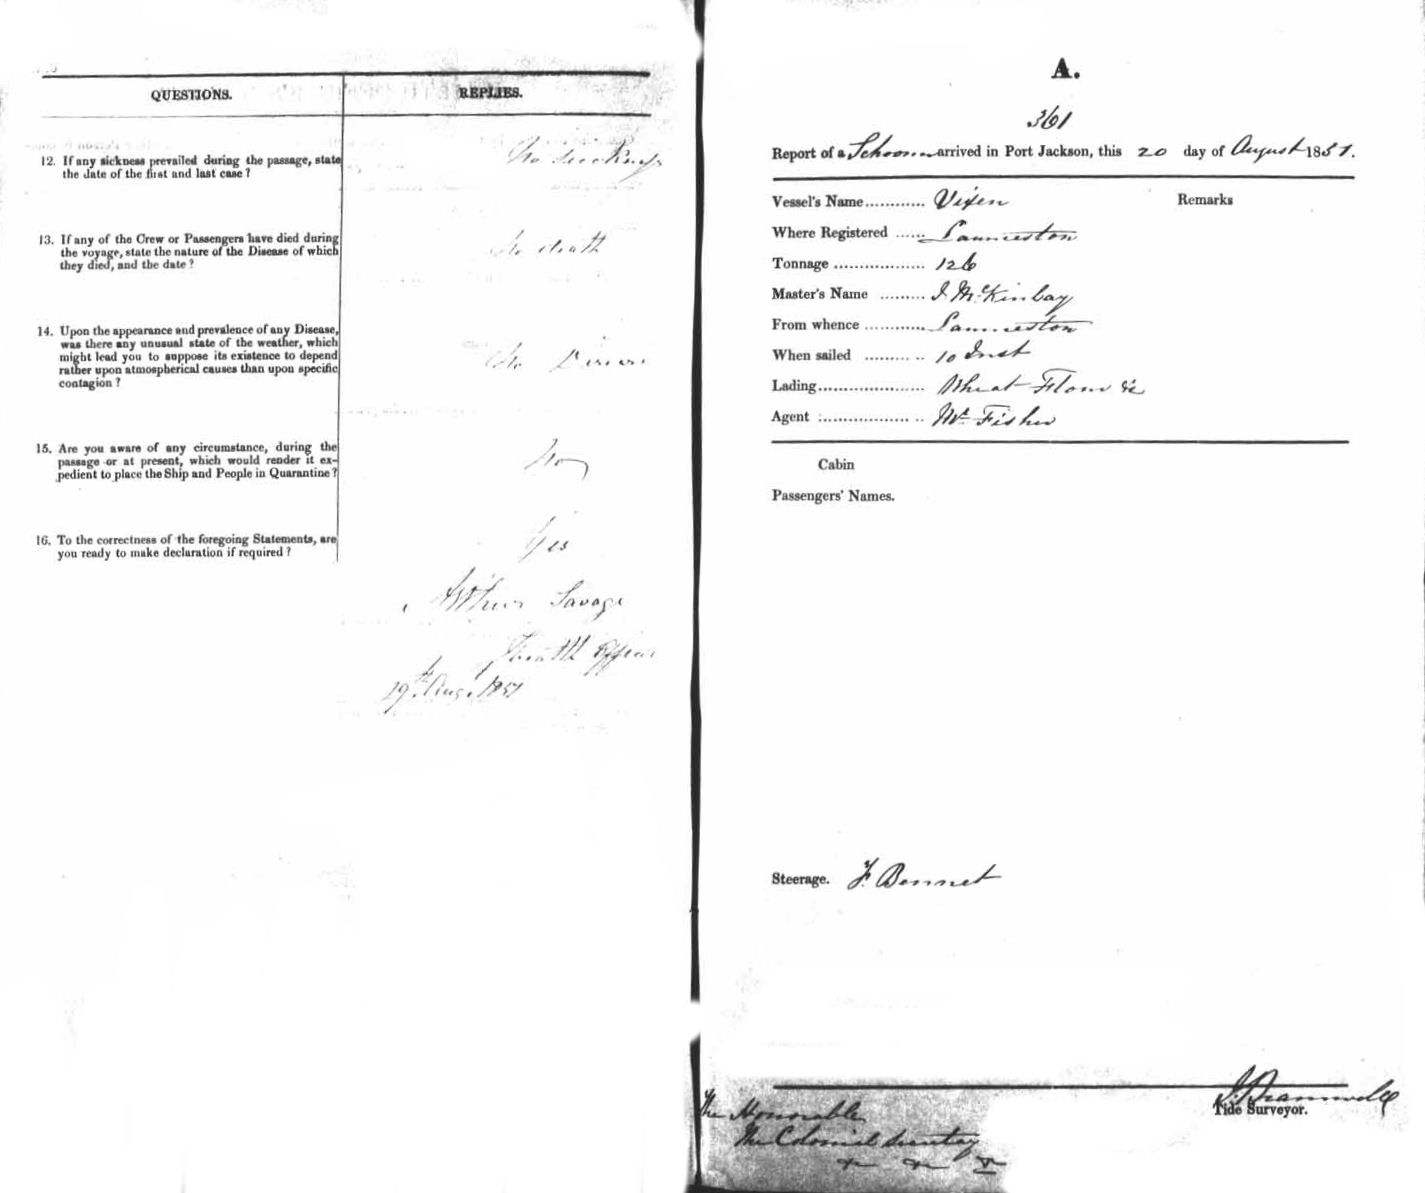 QUESTIONS.
REPLIES.
12. If any sickness prevailed during the passage, state
the date of the first and last case ?
No sickness
13. If any of the Crew or Passengers have died during
the voyage, state the nature of the Disease of which
they died, and the date ?
No death
14. Upon the appearance and prevalence of any Disease,
was there any unusual state of the weather, which
might lead you to suppose its existence to depend
rather upon atmospherical causes than upon specific
contagion ?
No Disease
15. Are you aware of any circumstance, during the
passage or at present, which would render it ex-
pedient to place the Ship and People in Quarantine ?
No
16. To the correctness of the foregoing Statements, are
you ready to make declaration if required ?
Yes
Arthur Savage
Health Officer
19th Aug. 1851
A.
361
Report of a Schooner arrived in Port Jackson, this 20 day of August 1851.
Vessel's Name............ Vixen
Remarks
Where Registered ...... Launceston
Tonnage .................. 126
Master's Name ......... J McKinlay
From whence ............ Launceston
When sailed ........... 10 Inst
Lading..................... Wheat Flour &c
Agent :................... Mr Fisher
Cabin
Passengers' Names.
Steerage. F. Bennet
J. Brammell
Tide Surveyor.
The Honorable
The Colonial Secretary